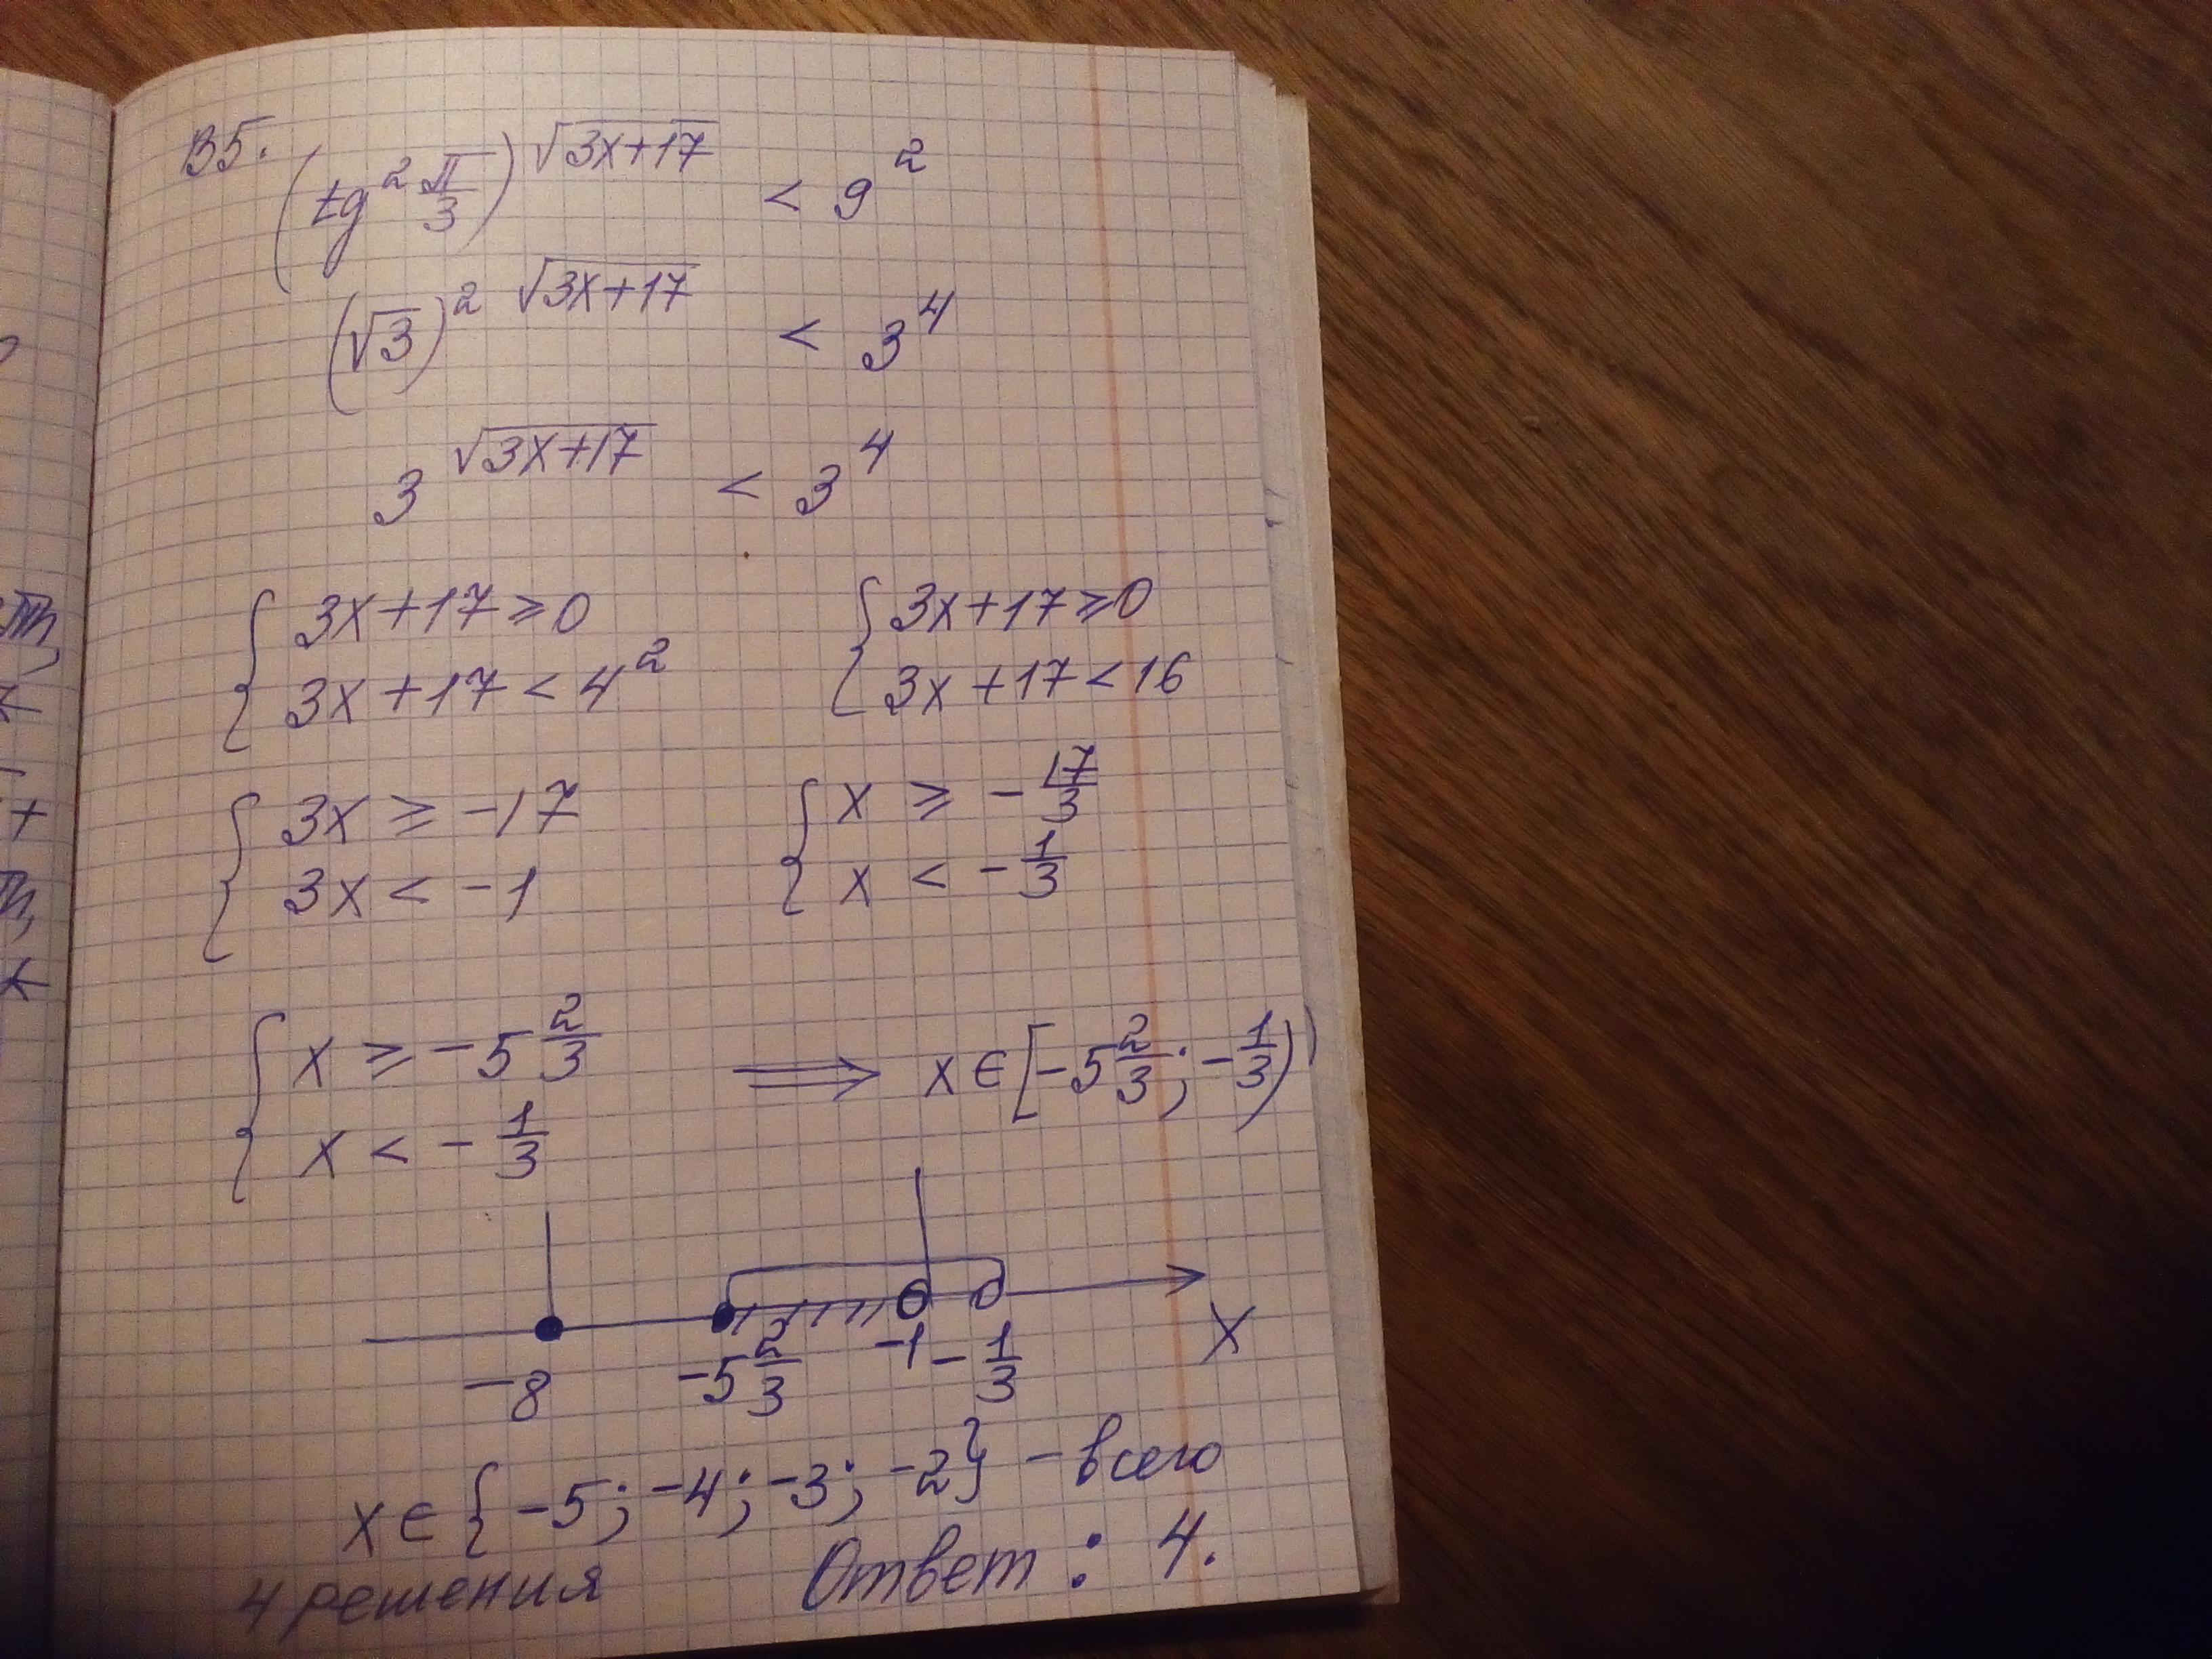 В5. (tg² π/3)^√(3x+17) < 9²
(√3)^2 √(3x+17) < 3⁴
3^√(3x+17) < 3⁴
{ 3x+17 ≥ 0 { 3x+17 ≥ 0
3x+17 < 4² 3x+17 < 16
{ 3x ≥ -17 { x ≥ -17/3
3x < -1 x < -1/3
{ x ≥ -5 2/3 ⟹ x ∈ [-5 2/3; -1/3)
x < -1/3
-8 -5 2/3 -1 -1/3 x
x ∈ {-5; -4; -3; -2} - всего
4 решения Ответ: 4.